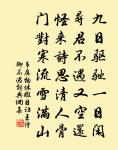 九日驱驰一日闲
寻君不遇又空还
怪来诗思清人骨
门对寒流雪满山
韦应物休假日访王侍
御不遇诗典图集